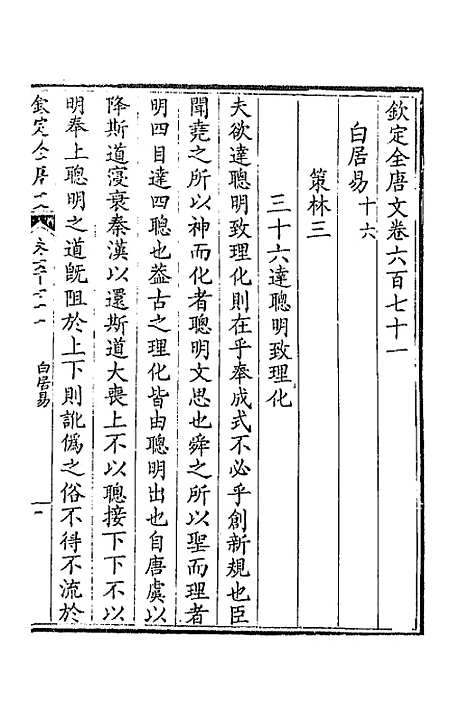 欽定全唐文卷六百七十一
白居易十六
策林三
三十六達聰明致理化
夫欲達聰明致理化則在乎奉成式不必乎創新規也臣
聞堯之所以神而化者聰明文思也舜之所以聖而理者
明四目達四聰也葢古之理化皆由聰明出也自唐虞以
降斯道寖衰秦漢以還斯道大喪上不以聰接下下不以
明奉上聰明之道旣阻於上下則訛僞之俗不得不流於
欽定全唐文
卷六百七十一
白居易
一